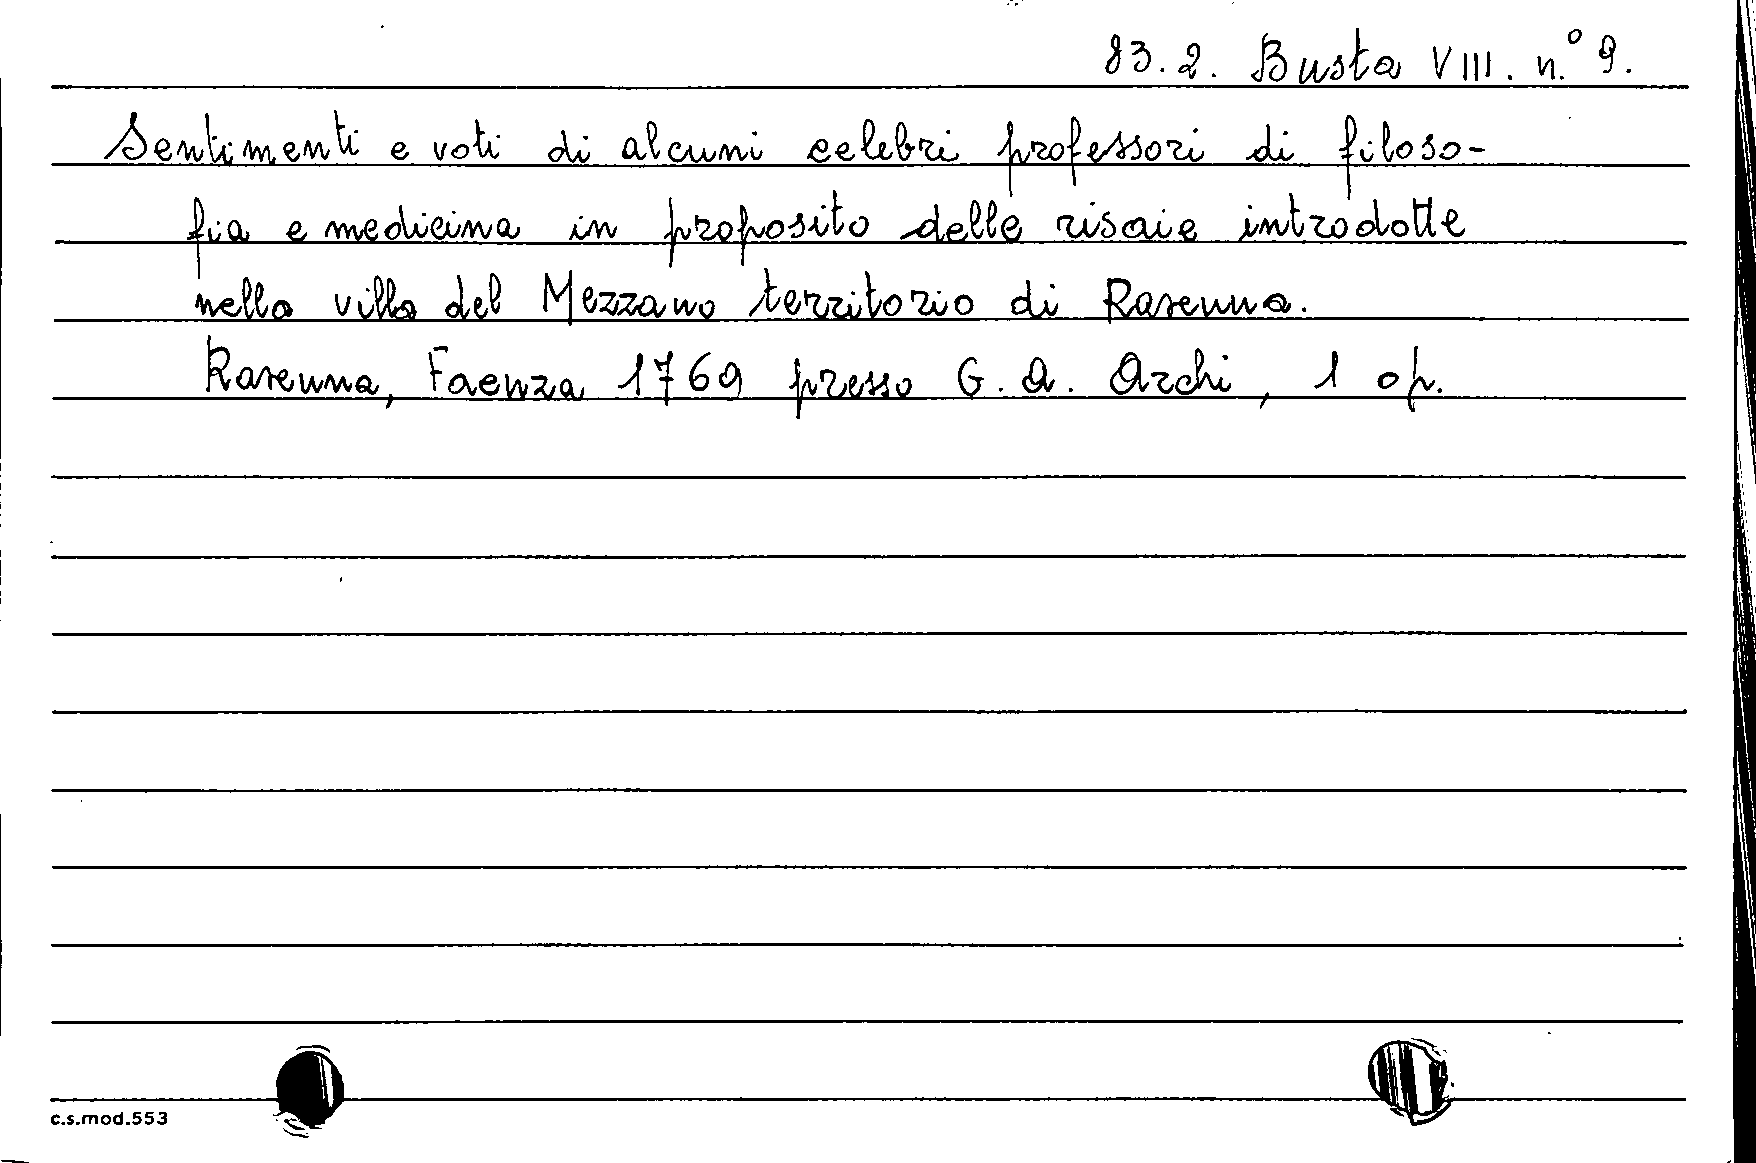 83.2. Busta VIII. n.° 9.
Sentimenti e voti di alcuni celebri professori di filoso-
fia e medicina in proposito delle risaie introdotte
nella villa del Mezzano territorio di Ravenna.
Ravenna, Faenza 1769 presso G. A. Archi, 1 op.
c.s.mod.553